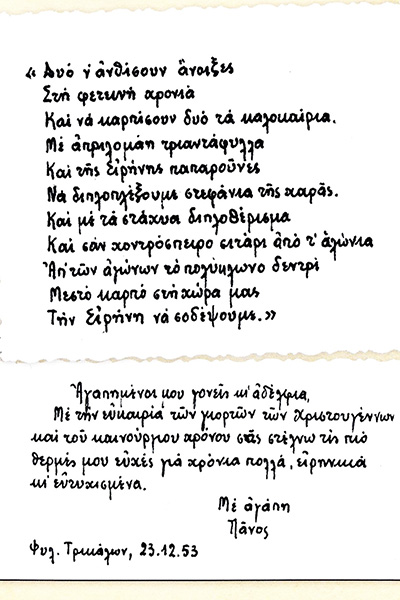 « Δυό ν' ἀνθίσουν ἄνοιξες
Στή φετεινή χρονιά
Καί νά καρπίσουν δυό τά καλοκαίρια.
Μέ ἀπριλομάη τριαντάφυλλα
Καί τῆς Εἰρήνης παπαροῦνες
Νά διπλοπλέξουμε στεφάνια τῆς χαρᾶς.
Καί μέ τά στάχυα διπλοθέρισμα
Καί σάν χοντρόσπειρο σιτάρι ἀπό τ' ἁλώνια
Ἀπ' τῶν ἀγώνων τό πολύκλωνο δεντρί
Μεστό καρπό στή χώρα μας
Τήν Εἰρήνη νά σοδέψουμε.»
Ἀγαπημένοι μου γονεῖς κι' ἀδέλφια,
Μέ τήν εὐκαιρία τῶν γιορτῶν τῶν Χριστουγέννων
καί τοῦ καινούργιου χρόνου σᾶς στέλνω τίς πιό
θερμές μου εὐχές γιά χρόνια πολλά, εἰρηνικά
κι' εὐτυχισμένα.
Μέ ἀγάπη
Πάνος
Φυλ. Τρικάλων, 23.12.53